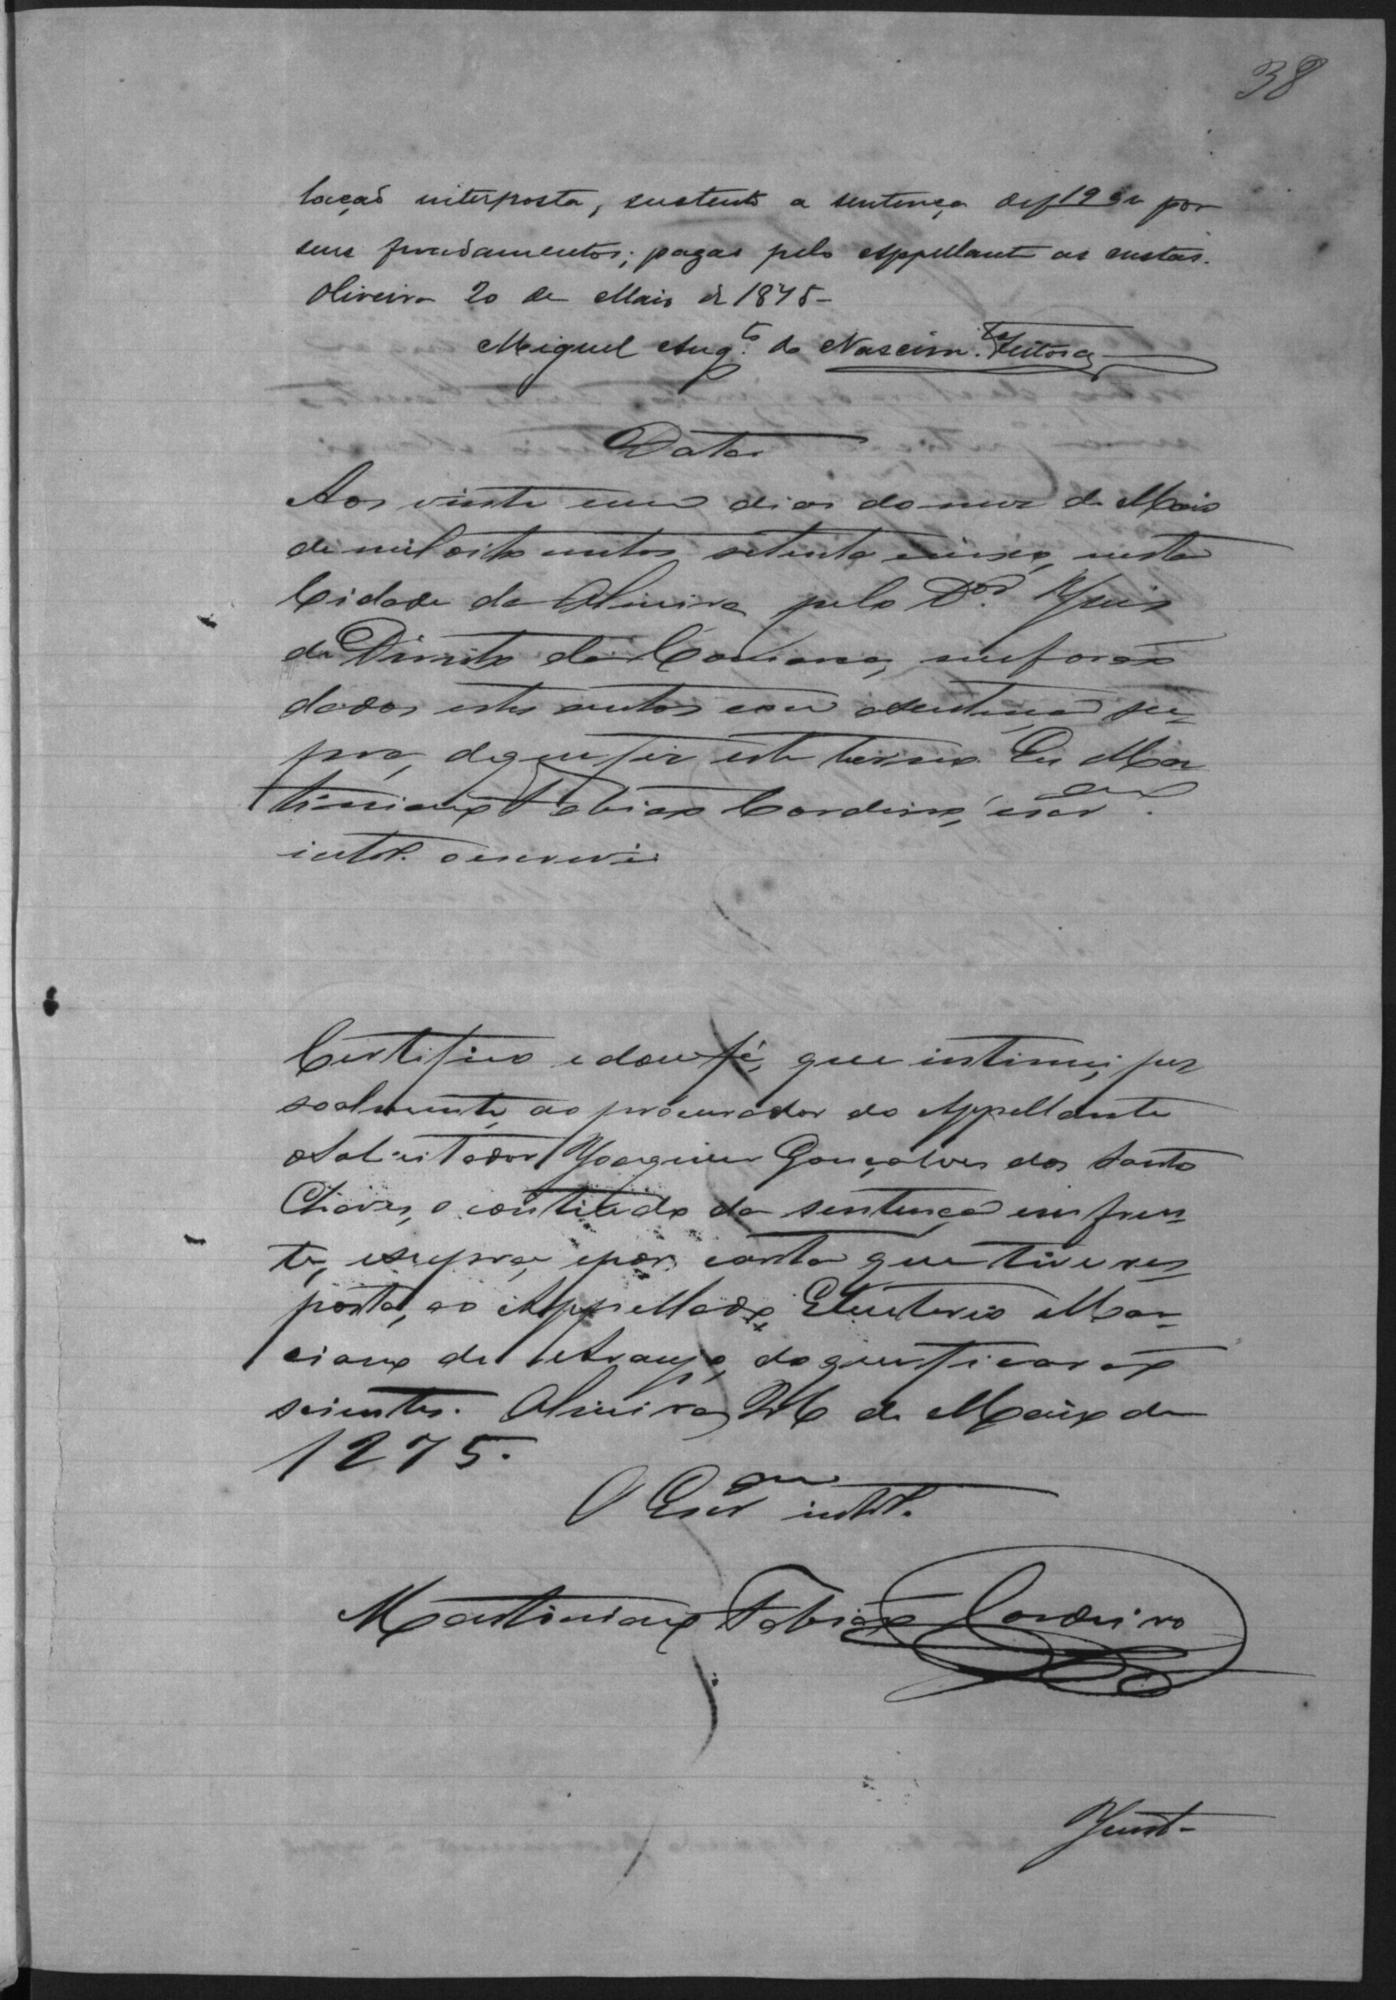 38
lação interposta, sustento a sentença de f 19 por
seus fundamentos; pagas pelo Appellante as custas.
Oliveira 20 de Maio de 1875 -
Miguel Aug.to do Nascim.to Feitosa
Data
Aos vinte um dias do mez de Maio
de mil oito centos setenta cinco, nesta
Cidade da Oliveira pelo D.or Juis
de Direito da Comarca, me forão
dados estes autos com a sentença su-
pra, de que fiz este termo. Eu Mar
tiniano Fabião Cordeiro, escr.am
intr.o o escrevi
Certifico e dou fé, que intimei pes
soalmente ao procurador do Appellante
o Solicitador Joaquim Gonçalves dos Santos
Chaves, o contiudo da sentença em fren-
te, e supra, e por carta que tive res-
posta, ao Appellado, Eleuterio Mar-
ciano de Araujo, do que ficarão
scientes. Oliveira de Maio de
1875.
O Escr.am intr.o
Martiniano Fabião Cordeiro
Junt-